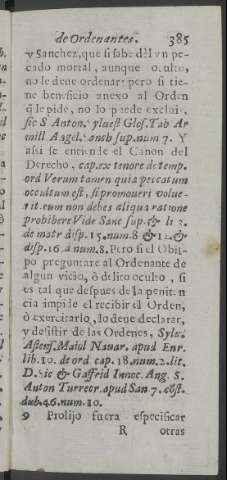 de Ordenantes. 385
y Sanchez, que si sabe dèl un pe-
cado mortal, aunque oculto,
no le deve ordenar; pero si tie-
ne beneficio anexo al Orden
q̃ le pide, no lo puede excluir,
sic S Anton. Glos. Tab Ar
mill Angel. sup. num 7. Y
assi se entiende el Canon del
Derecho, cap. ex tenore de temp.
ord Verum tamen quia peccatum
occultum est, si promoveri volue-
rit eum non debes aliqua ratione
prohibere Vide Sanc sup. & li 2.
de matr disp. 15. num. 8 & 12. &
disp. 16. à num. 8. Pero si el Obis-
po preguntare al Ordenante de
algun vicio, ò delito oculto, si
es tal que despues de la peniten
cia impide el recibir el Orden,
ò exercitarlo, lo deve declarar,
y desistir de las Ordenes, Sylv.
Astens. Maiol Navar. apud Enr.
lib. 10. de ord cap. 18. num. 2. lit.
D. Sic & Gaffrid Innoc. Ang. S.
Anton Turrecr. apud San 7.
dub. 46. num. 10.
9 Prolijo fuera especificar
R otras